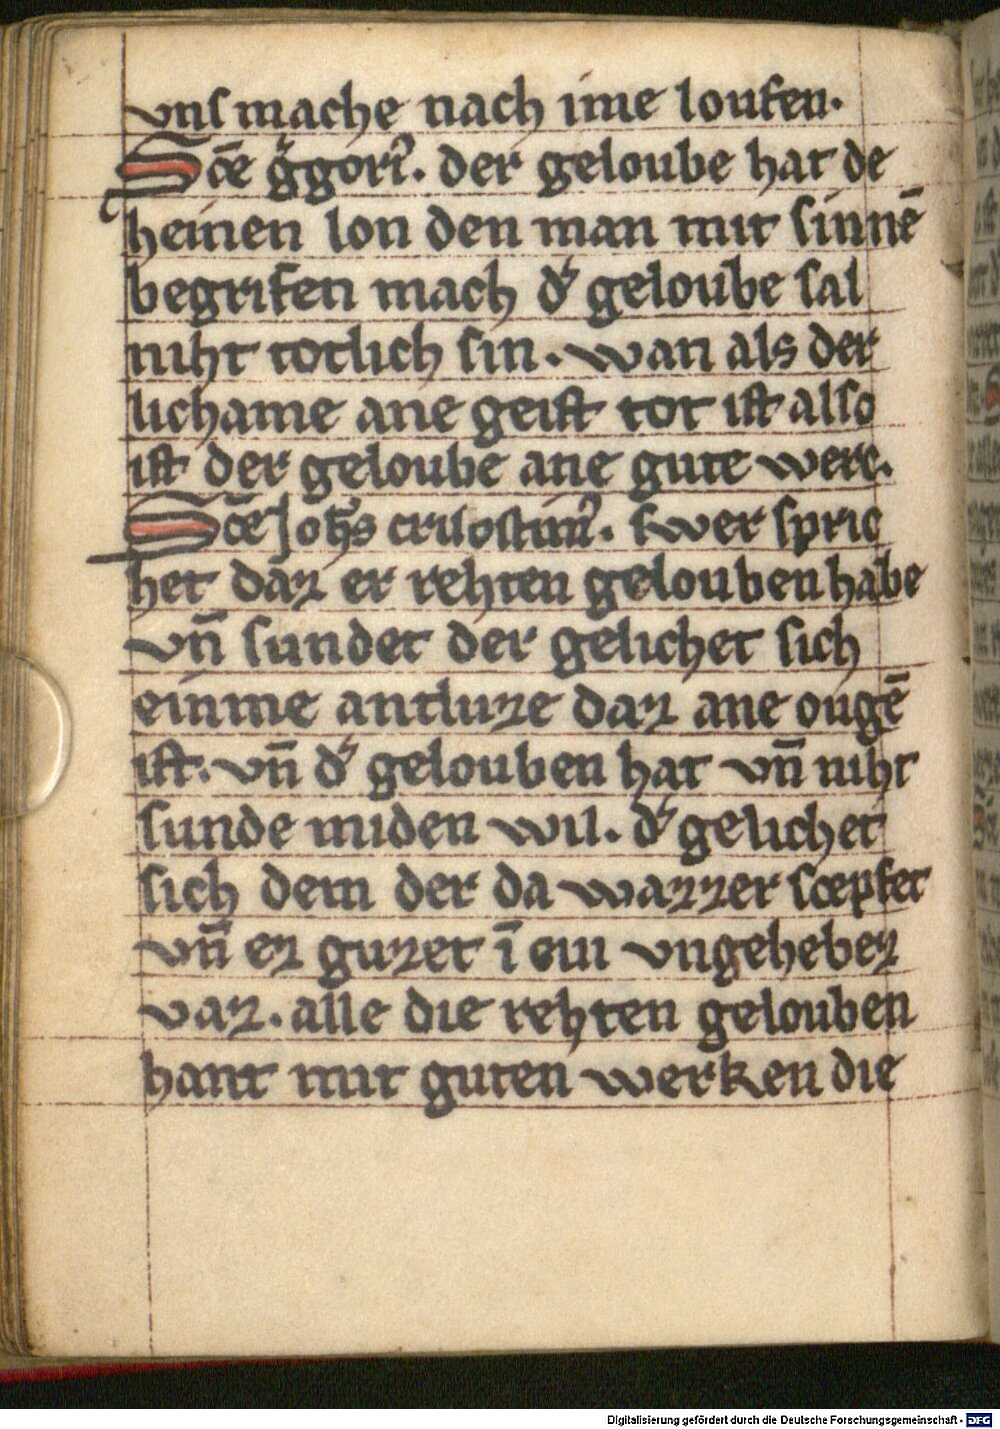 vnſ mache nach ime loufen.
Sc̄e g̾gori᷒. der geloube hat de
heinen lon den man mit ſinnē
begrifen mach d᷒ geloube ſal
niht totlich ſin. wan als der
lichame ane geiſt tot iſt alſo
iſt der geloube ane gute werc.
Sc̄e Joh̄s criſoſtim᷒. ſwer ſpric
het daz er rehten gelouben habe
vn̄ ſundet der gelichet ſich
einme antluze daz ane ougē
iſt. vn̄ d᷒ gelouben hat vn̄ niht
ſunde miden wil. d᷒ gelichet
ſich dem der da wazzer ſcepfet
vn̄ ez guzet ī ein vngehebez
vaz. alle die rehten gelouben
hant mit guten werken die
Digitalisierung gefördert durch die Deutsche Forschungsgemeinschaft - DFG